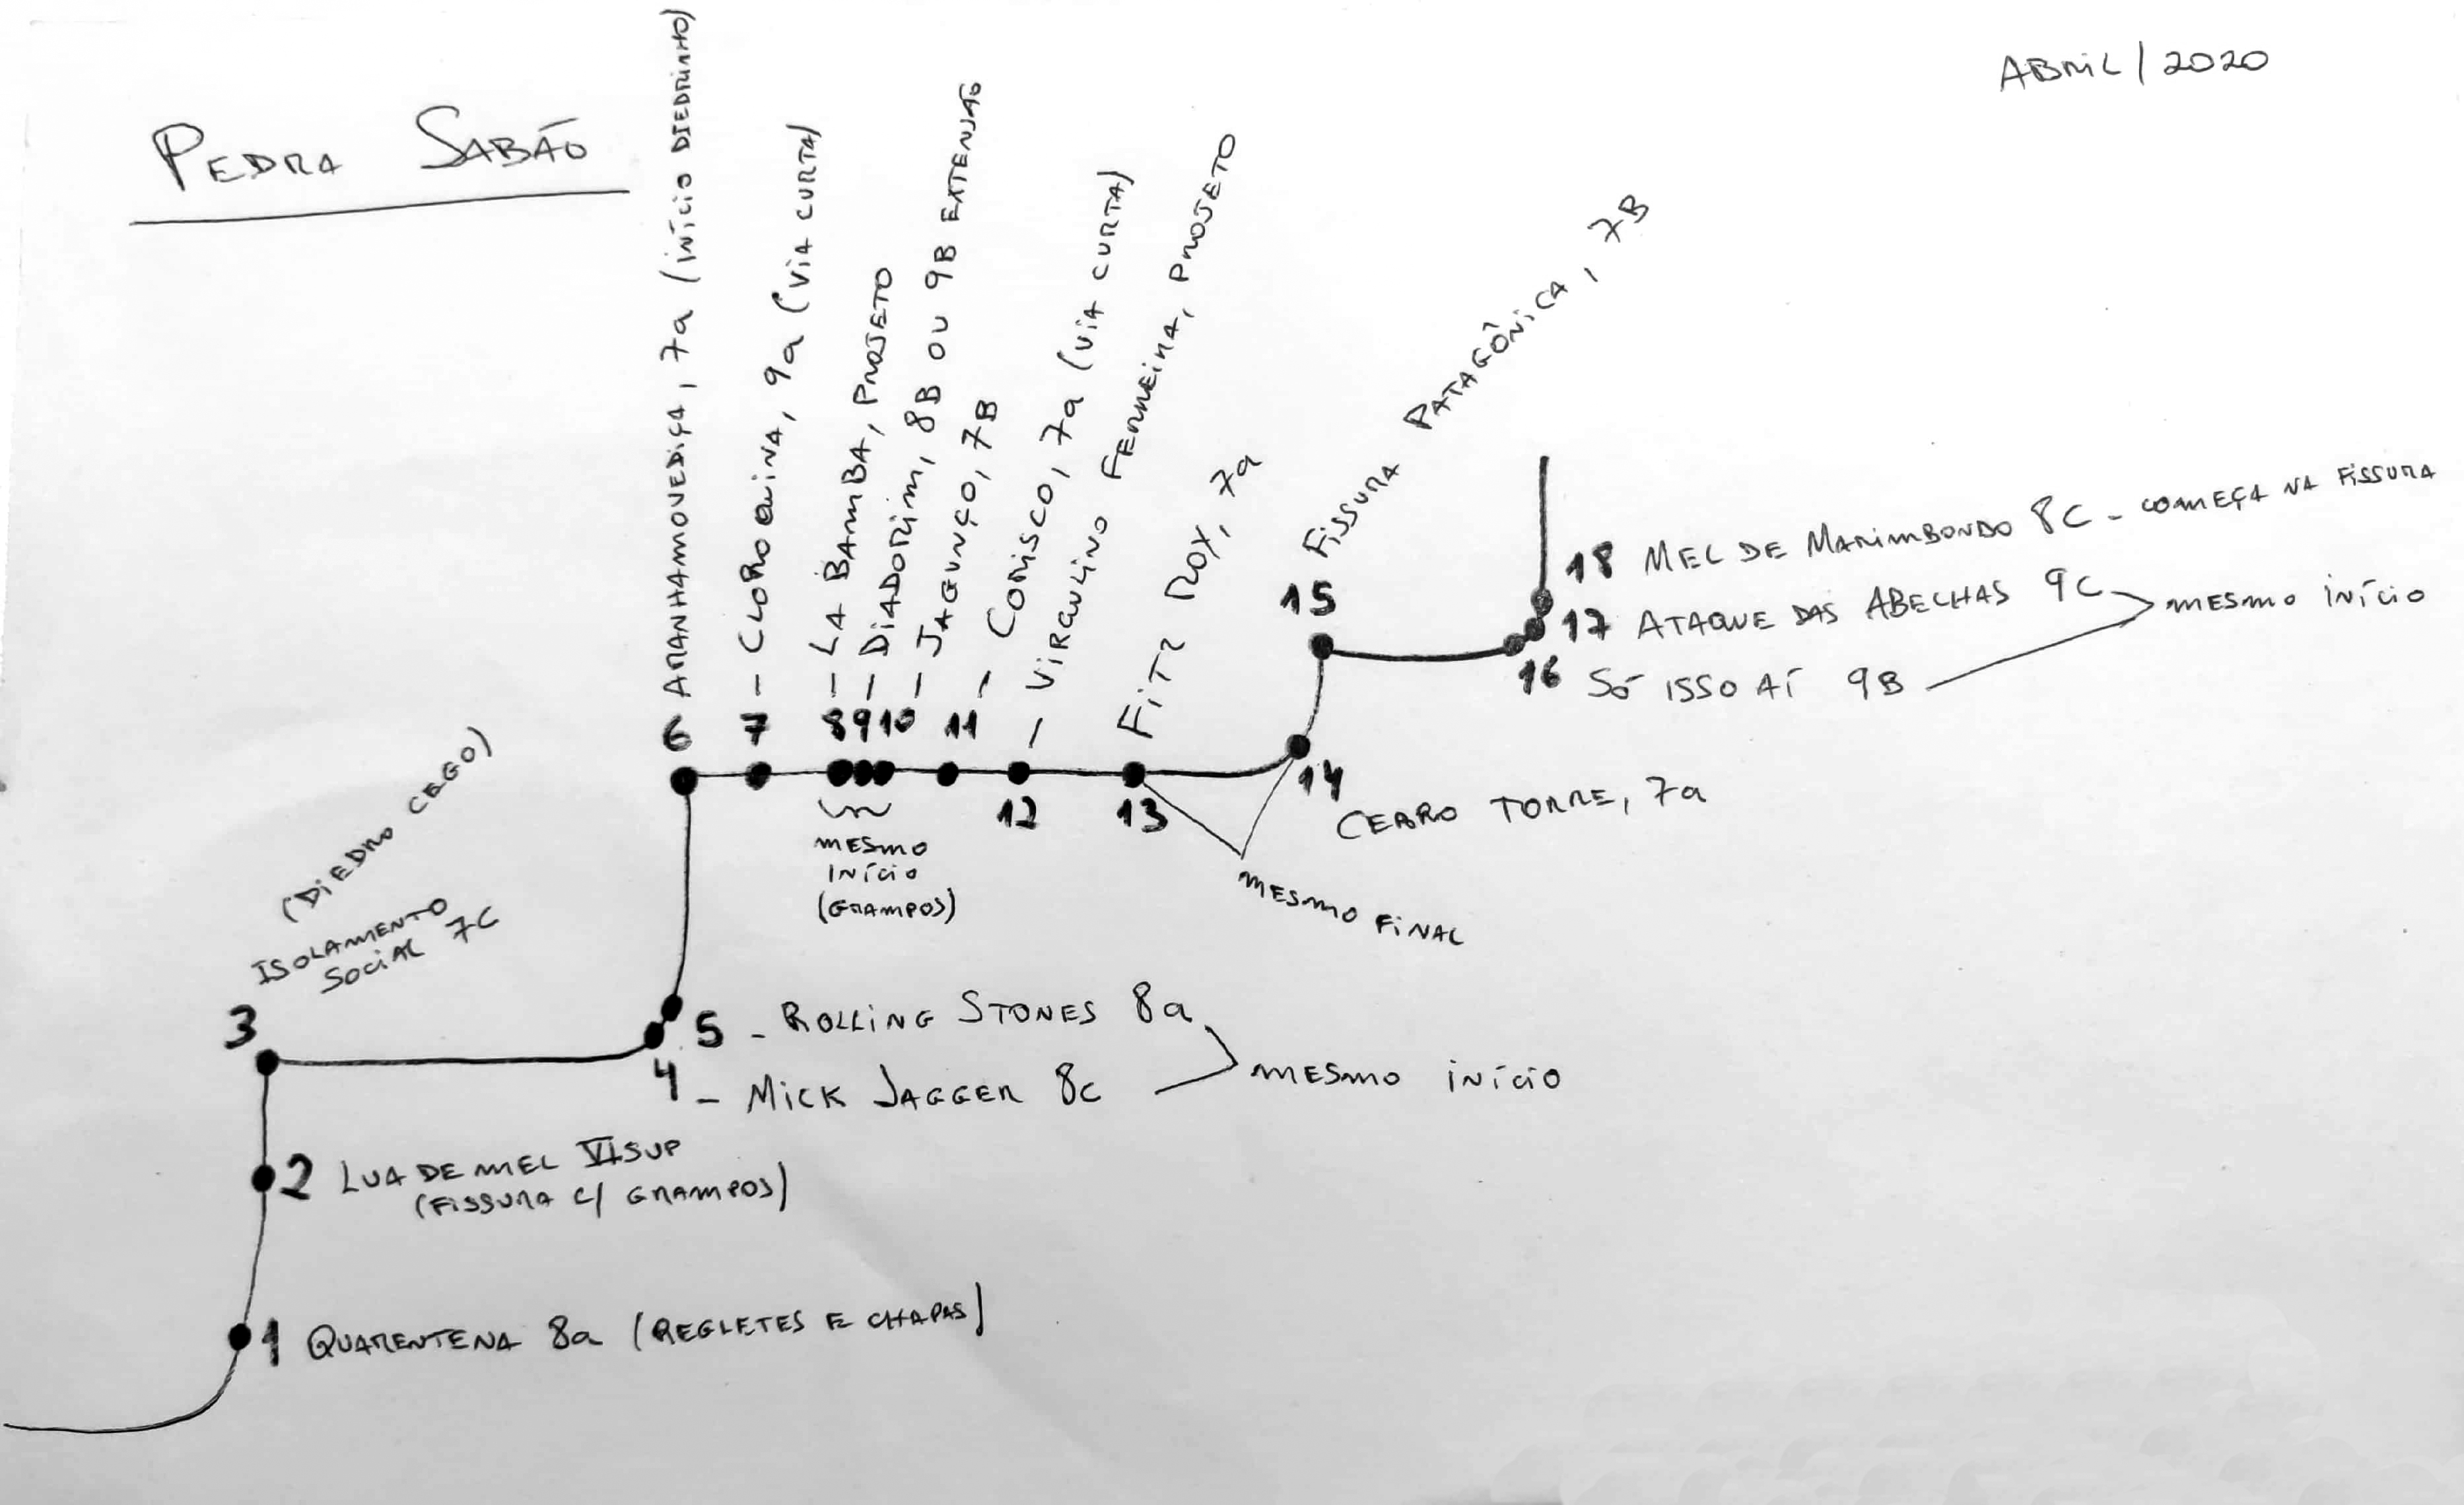 PEDRA SABÃO
ABRIL/2020
6 ARANHAMOVEDIÇA, 7a (INÍCIO DIEDRINHO)
7 - CLOROQUINA, 9a (VIA CURTA)
8 - LA BAMBA, PROJETO
9 - DIADORIM, 8B OU 9B EXTENSÃO
10 - JAGUNÇO, 7B
11 - CORISCO, 7a (VIA CURTA)
12 - VIRGULINO FERREIRA, PROJETO
13 FITZ ROY, 7a
14 CERRO TORRE, 7a
15 FISSURA PATAGÔNICA, 7B
18 MEL DE MARIMBONDO 8C - COMEÇA NA FISSURA
17 ATAQUE DAS ABELHAS 9C
16 SÓ ISSO AÍ 9B
MESMO INÍCIO
MESMO
INÍCIO
(GRAMPOS)
MESMO FINAL
(DIEDRO CEGO)
ISOLAMENTO
SOCIAL 7C
3
5 - ROLLING STONES 8a
4 - MICK JAGGER 8C
MESMO INÍCIO
2 LUA DE MEL VISUP
(FISSURA C/ GRAMPOS)
1 QUARENTENA 8a (REGLETES E CHAPAS)